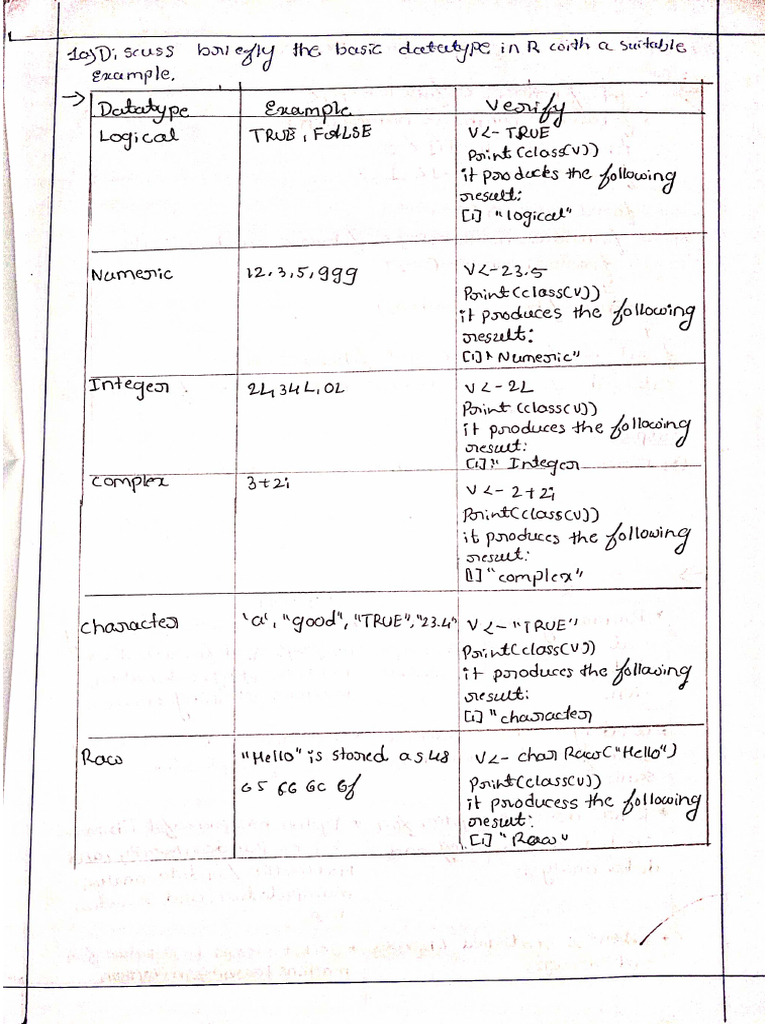 10) Discuss briefly the basic datatype in R with a suitable
Example.
Datatype Example Verify
Logical TRUE, FALSE V <- TRUE
Print(class(V))
it produces the following
result:
[1] "logical"
Numeric 12,3,5,999 V <- 23.5
Print(class(V))
it produces the following
result:
[1] "Numeric"
Integer 2L, 34L, 0L V <- 2L
Print(class(V))
it produces the following
result:
[1] " Integer
complex 3+2i V <- 2+2i
Print(class(V))
it produces the following
result:
[1] "complex"
character 'a', "good", "TRUE", "23.4" V <- "TRUE"
Print(class(V))
it produces the following
result:
[1] "character
Raw "Hello" is stored as 48 V <- char Raw("Hello")
65 6C 6f Print(class(V))
it producess the following
result:
[1] "Raw"